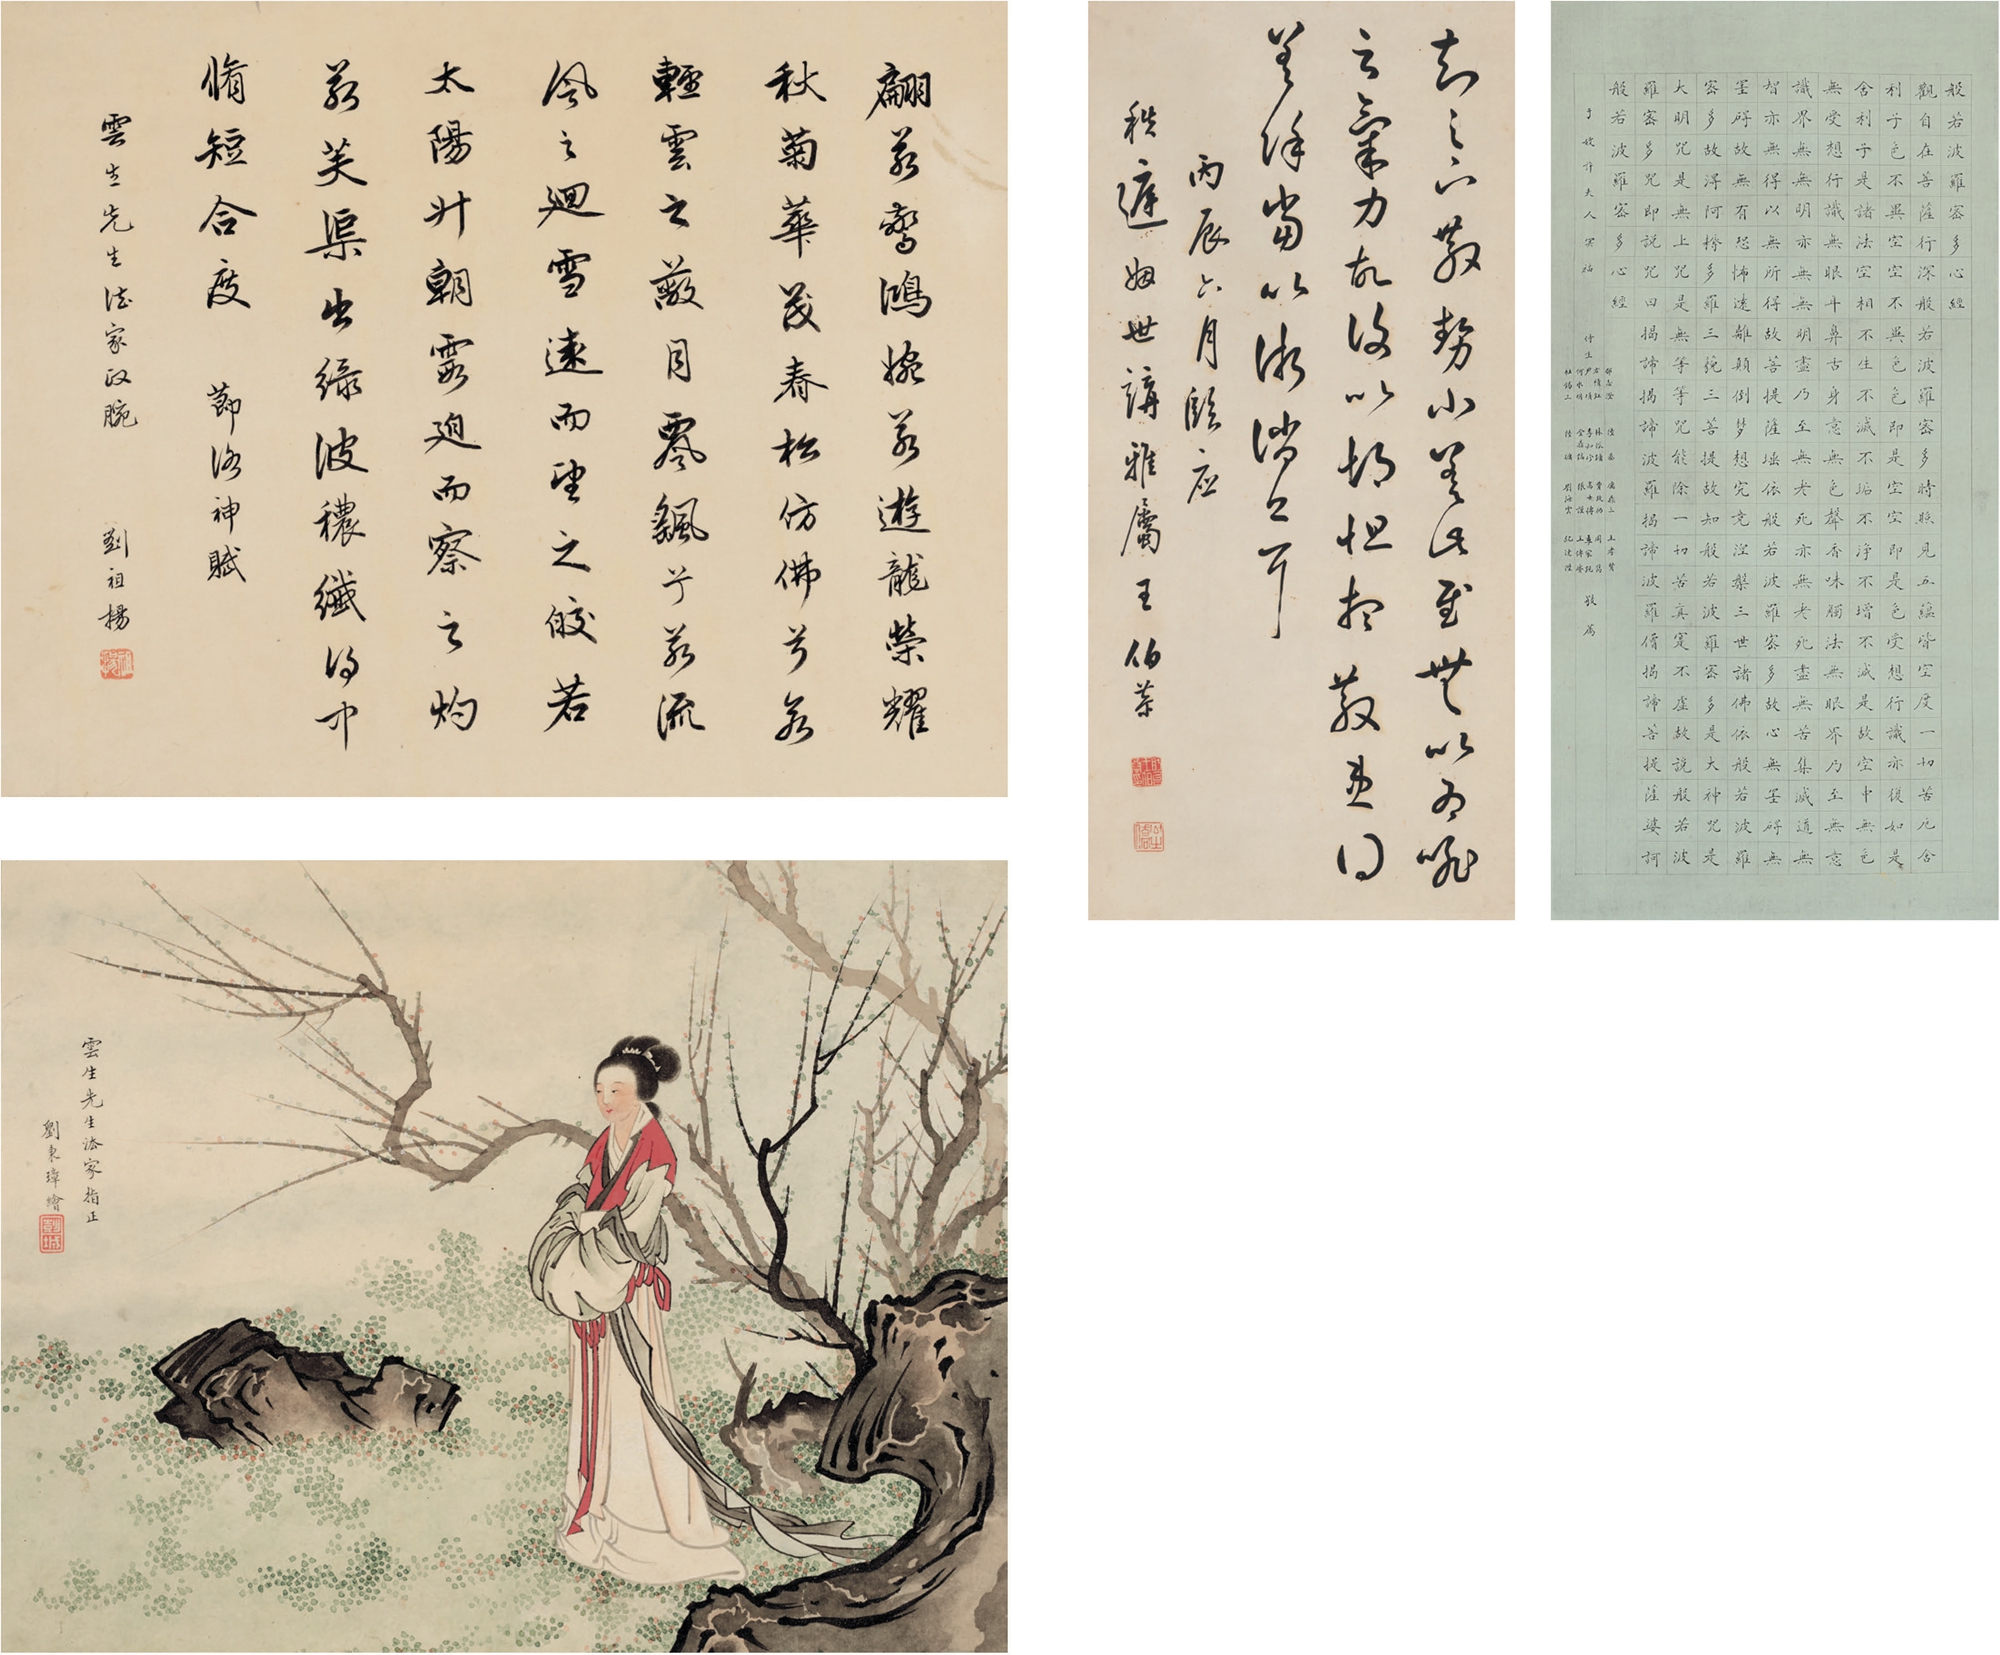 翩若驚鴻婉若遊龍榮耀
秋菊華茂春松仿佛兮若
輕雲之蔽月飄颻兮若流
風之迴雪遠而望之皎若
太陽升朝霞迫而察之灼
若芙渠出綠波穠纖得中
脩短合度 節洛神賦
雲生先生法家政腕
劉祖楊
知足下散勢小差此慰無以為喻
云氣力故復以惙怛想散患得
差餘當以漸消息耳
丙辰六月臨應
秩遲姻世講雅屬王伯恭
般若波羅密多心經
觀自在菩薩行深般若波羅密多時照見五蘊皆空度一切苦厄舍
利子色不異空空不異色色即是空空即是色受想行識亦復如是
舍利子是諸法空相不生不滅不垢不淨不增不減是故空中無色
無受想行識無眼耳鼻舌身意無色聲香味觸法無眼界乃至無意
識界無無明亦無無明盡乃至無老死亦無老死盡無苦集滅道無
智亦無得以無所得故菩提薩埵依般若波羅密多故心無罣碍無
罣碍故無有恐怖遠離顛倒夢想究竟涅槃三世諸佛依般若波羅
密多故得阿耨多羅三藐三菩提故知般若波羅密多是大神咒是
大明咒是無上咒是無等等咒能除一切苦真寔不虛故說般若波
羅密多咒即說咒曰揭諦揭諦波羅揭諦波羅僧揭諦菩提薩婆訶
般若波羅密多心經
雲生先生法家指正
劉秉璋繪